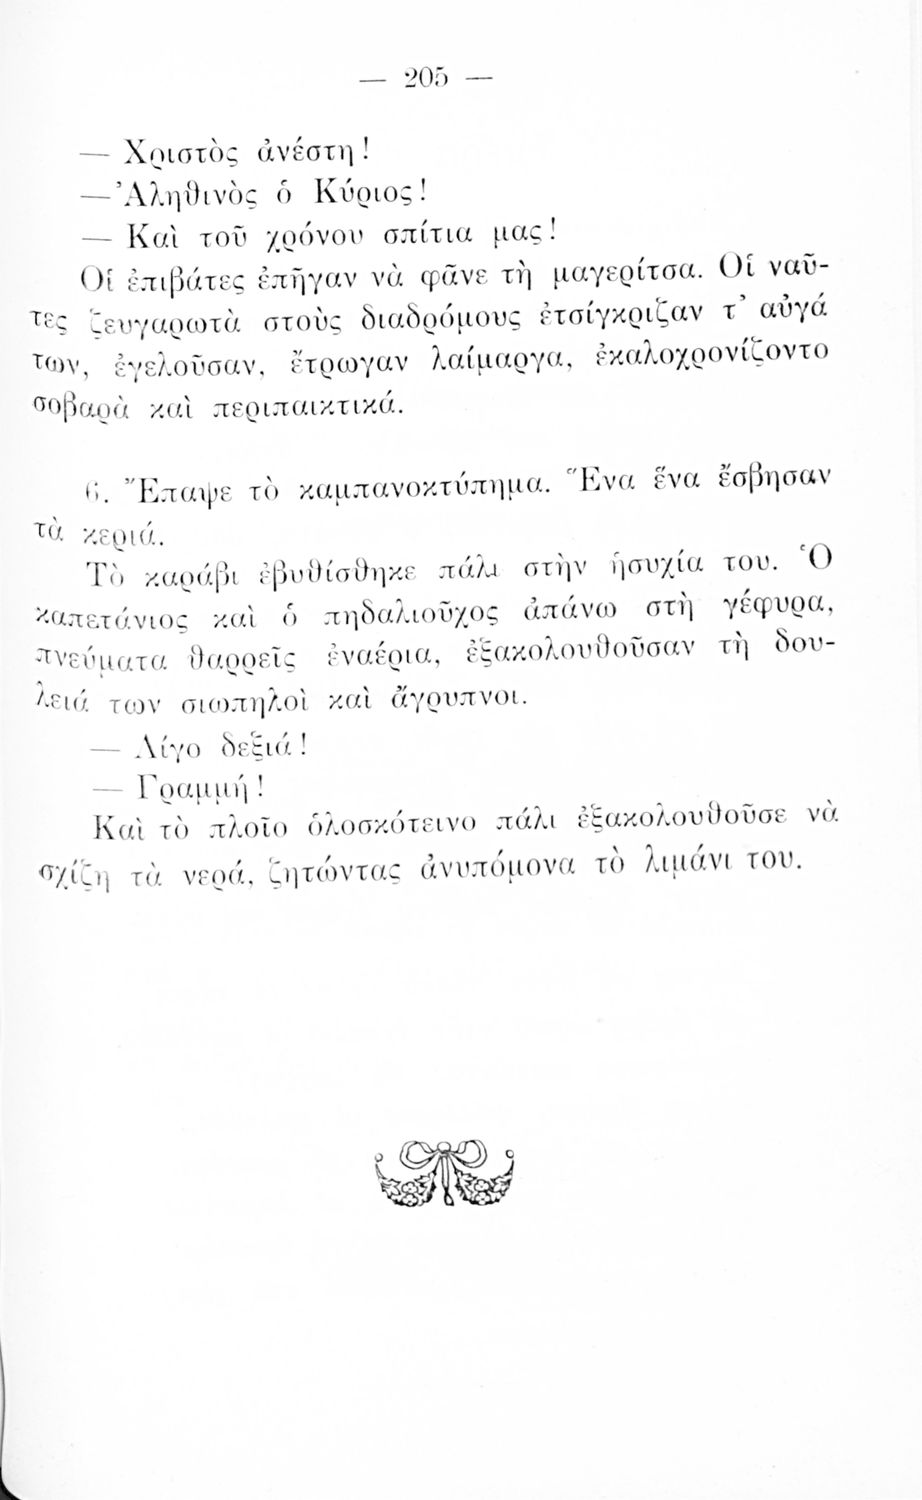 — 205 —
— Χριστὸς ἀνέστη!
— Ἀληθινὸς ὁ Κύριος!
— Καὶ τοῦ χρόνου σπίτια μας!
Οἱ ἐπιβάτες ἐπῆγαν νὰ φᾶνε τὴ μαγερίτσα. Οἱ ναῦ-
τες ζευγαρωτὰ στοὺς διαδρόμους ἐτσίγκριζαν τ᾽ αὐγά
των, ἐγελοῦσαν, ἔτρωγαν λαίμαργα, ἐκαλοχρονίζοντο
σοβαρὰ καὶ περιπαικτικά.
6. Ἔπαψε τὸ καμπανοκτύπημα. Ἕνα ἕνα ἔσβησαν
τὰ κεριά.
Τὸ καράβι ἐβυθίσθηκε πάλι στὴν ἡσυχία του. Ὁ
καπετάνιος καὶ ὁ πηδαλιοῦχος ἀπάνω στὴ γέφυρα,
πνεύματα θαρρεῖς ἐναέρια, ἐξακολουθοῦσαν τὴ δου-
λειά των σιωπηλοὶ καὶ ἄγρυπνοι.
— Λίγο δεξιά!
— Γραμμή!
Καὶ τὸ πλοῖο ὁλοσκότεινο πάλι ἐξακολουθοῦσε νὰ
σχίζη τὰ νερά, ζητώντας ἀνυπόμονα τὸ λιμάνι του.